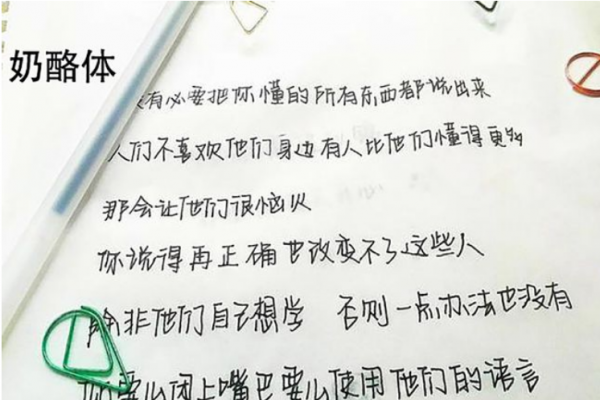 奶酪体
没有必要把你懂的所有东西都说出来
人们不喜欢他们身边有人比他们懂得更多
那会让他们很恼火
你说得再正确也改变不了这些人
除非他们自己想学 否则一点办法也没有
你要么闭上嘴巴要么使用他们的语言